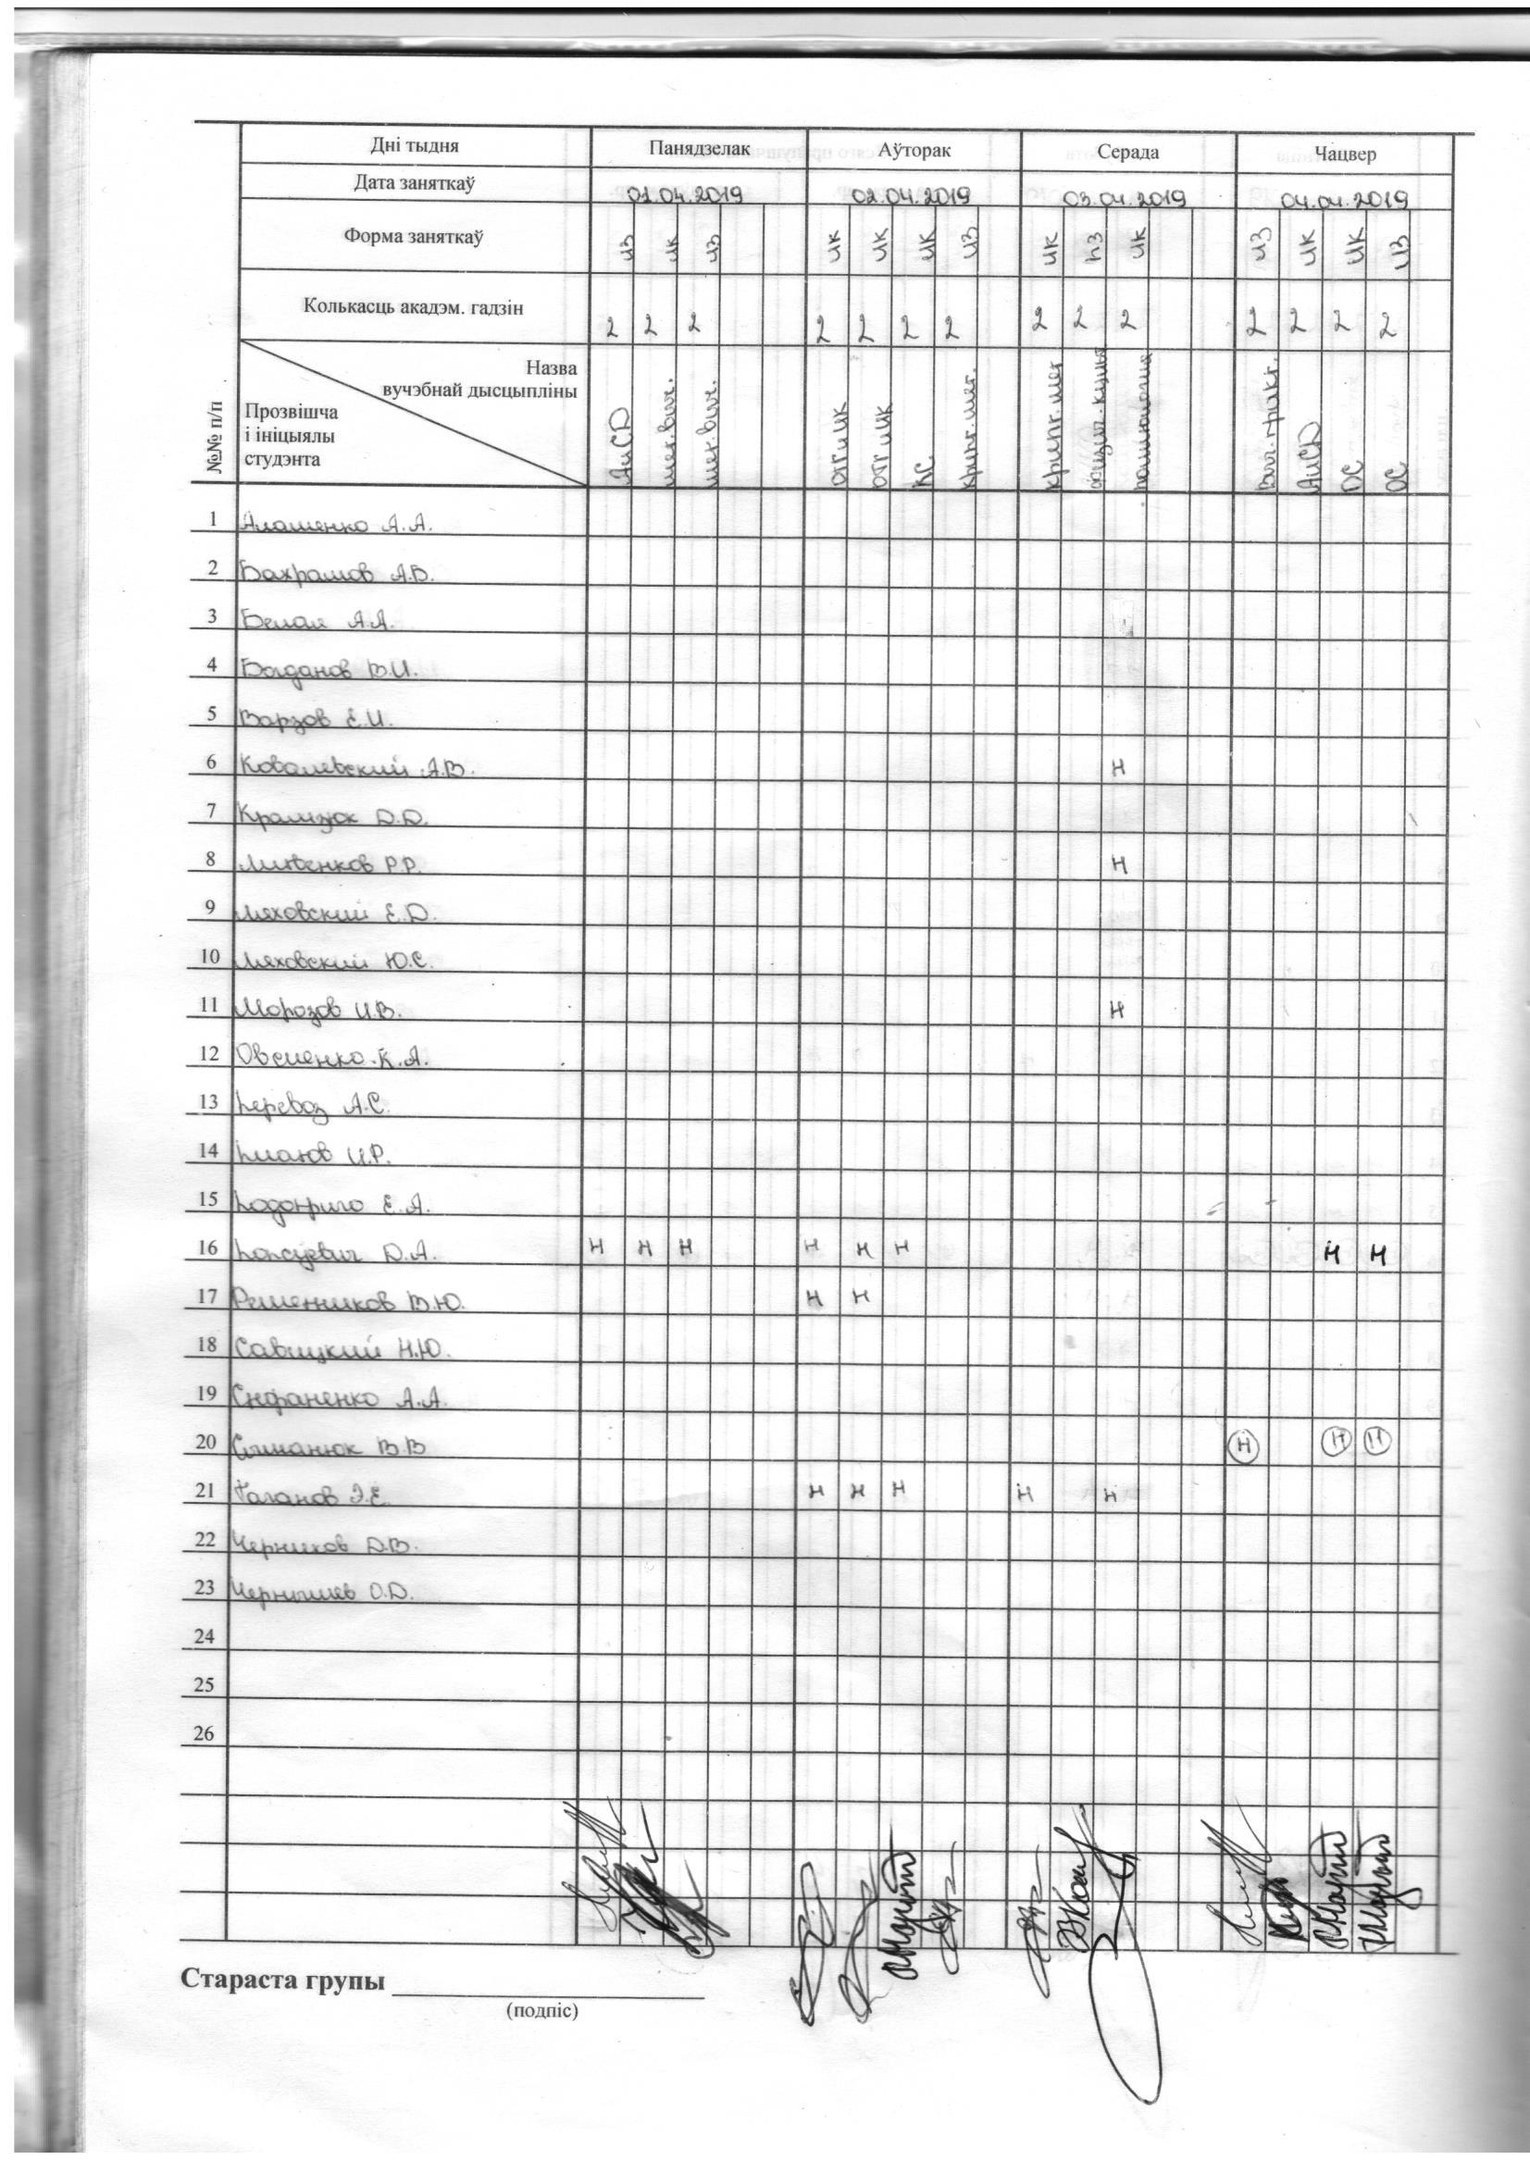 Дні тыдня Панядзелак Аўторак Серада Чацвер
Дата заняткаў 01.04.2019 02.04.2019 03.04.2019 04.04.2019
Форма заняткаў лз лк лз лк лк лк лз лк пз лк лз лк лк лз
Колькасць акадэм. гадзін 2 2 2 2 2 2 2 2 2 2 2 2 2 2
№№ п/п
Назва
вучэбнай дысцыпліны
Прозвішча
і ініцыялы
студэнта
АиСД мет.выч. мет.выч. КС крипт.мет. крипт.мет АиСД ОС ОС
1 А.А.
2 Бахрамов А.В.
3 Белая А.А.
4 Богданов В.И.
5 Варзов Е.И.
6 Ковалевский А.В. н
7 Д.Д.
8 Литвенков Р.Р. н
9 Ляховский Е.Д.
10 Ляховский Ю.С.
11 Морозов И.В. н
12 Овсиенко К.А.
13 Перевоз А.С.
14 Платов И.Р.
15 Подоприго Е.А.
16 Д.А. н н н н н н н н
17 Решетников В.Ю. н н
18 Савицкий Н.Ю.
19 Стефаненко А.А.
20 Сыманюк В.В н н н
21 Таланов Э.Е. н н н н н
22 Черников Д.В.
23 Чернышев О.Д.
24
25
26
Стараста групы
(подпіс)